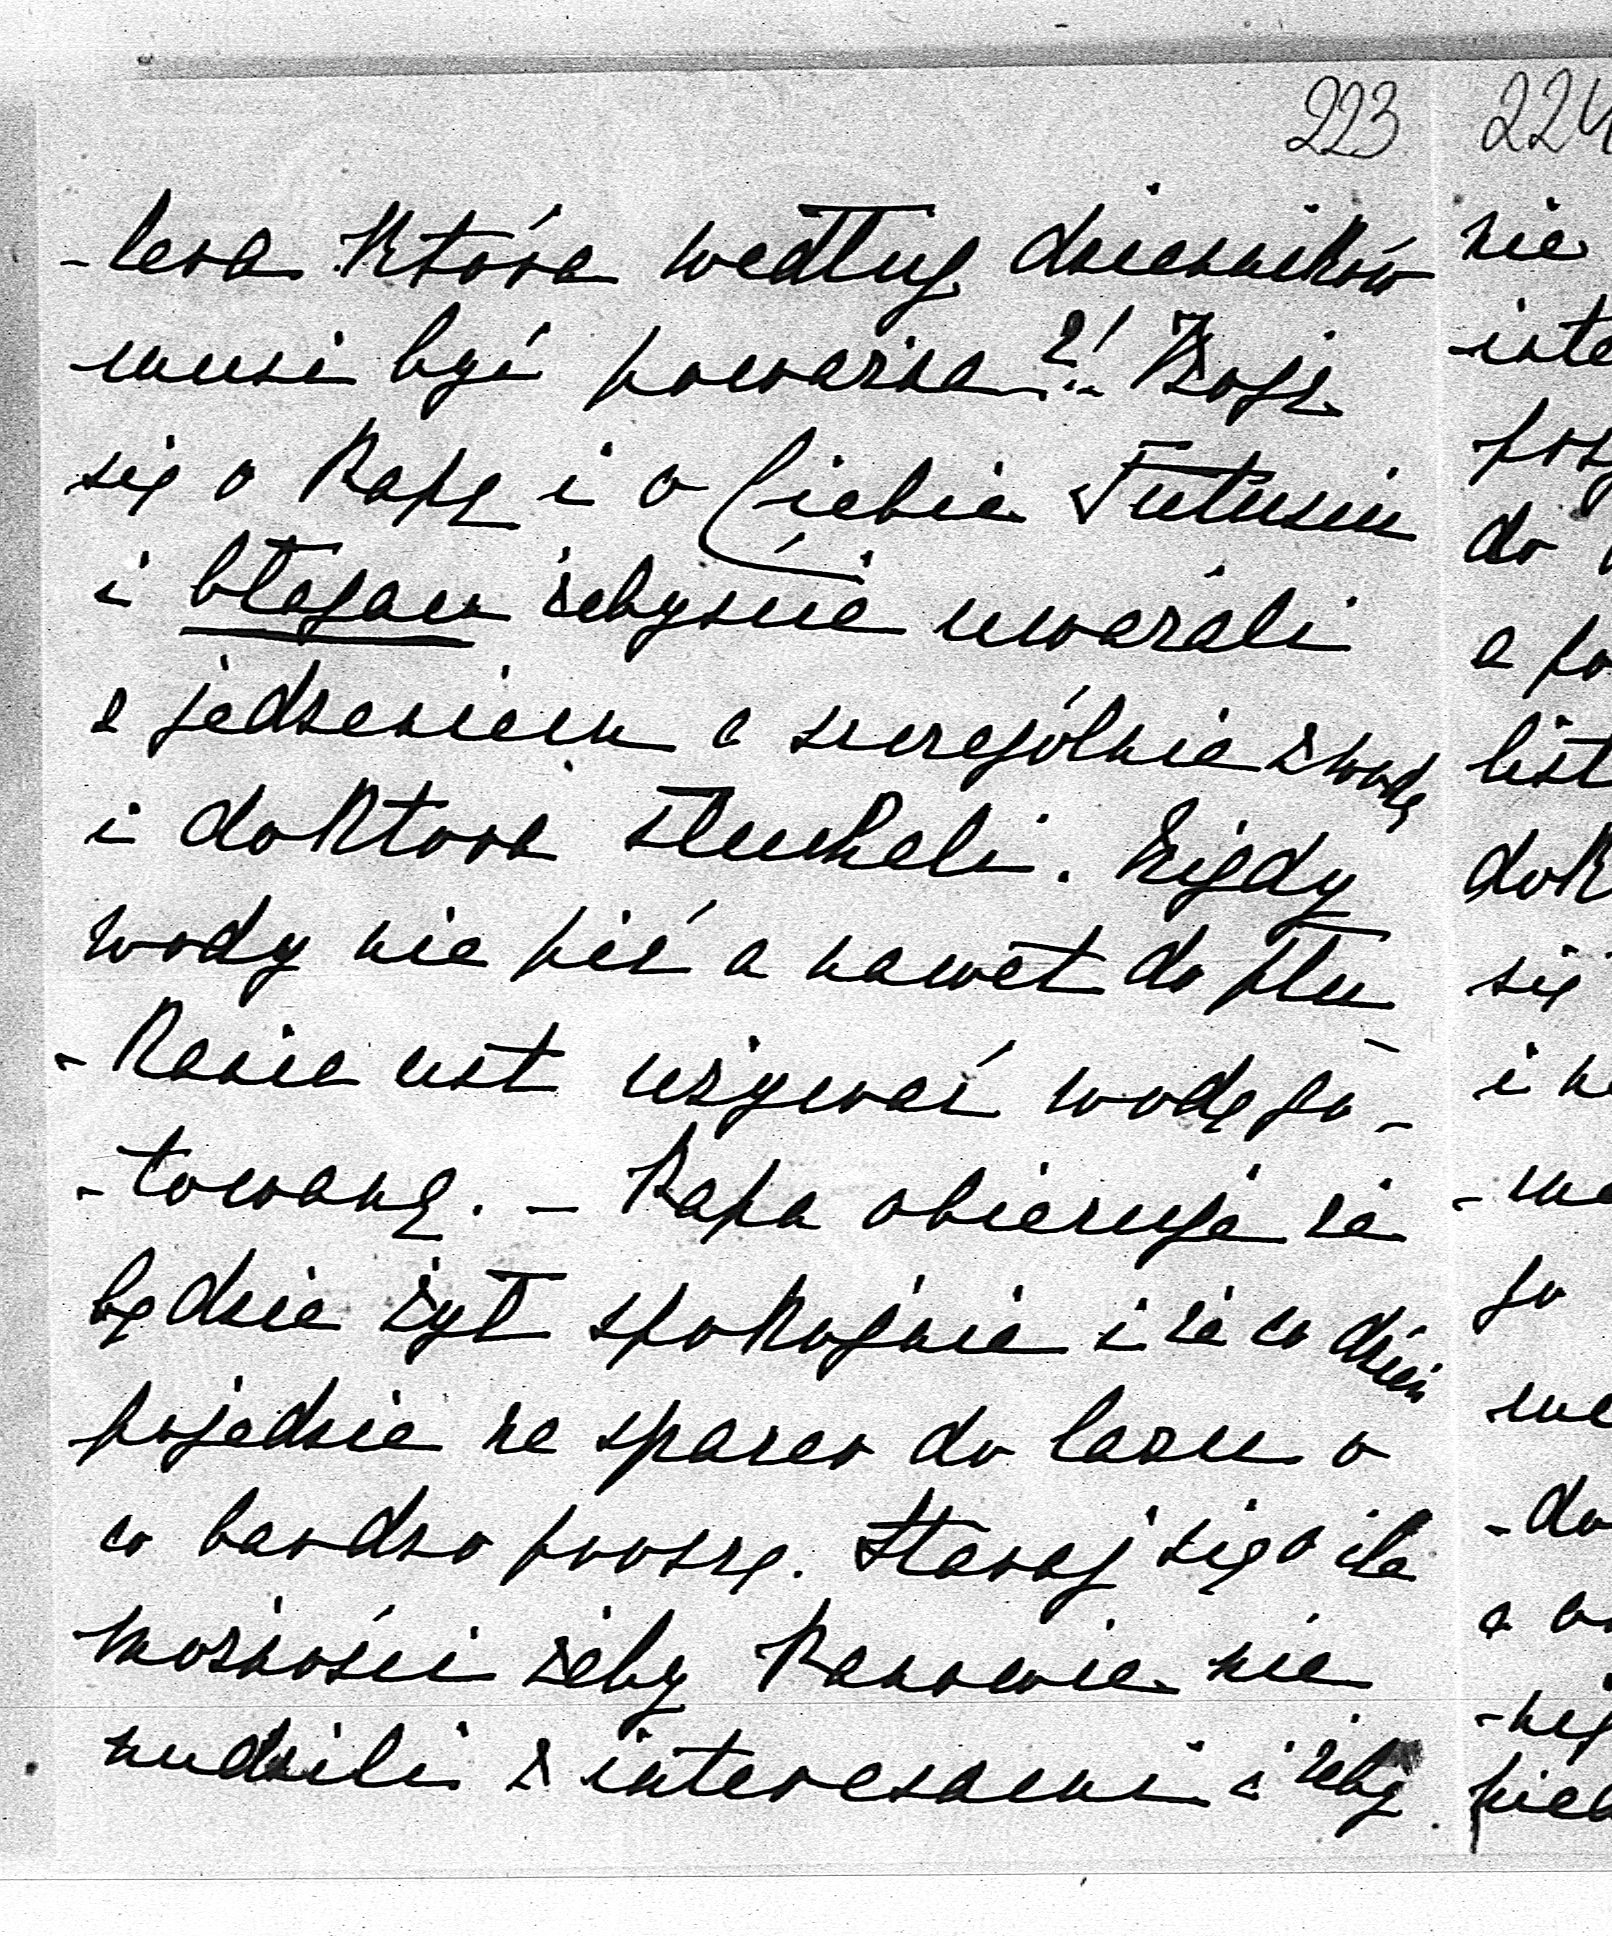 223
-lera która według dzienników
musi być poważna?! Boję
się o Papę i o Ciebie Tutusiu
i błagam żebyście uważali
z jedzeniem a szczególnie z wodą
i doktora słuchali. Nigdy
wody nie pić a nawet do płu
-kania ust używać wodę go-
-towaną. - Papa obiecuje że
będzie żył spokojnie i że co dzień
pojedzie na spacer do lasu o
co bardzo proszę. Staraj się o ile
możności żeby Panowie nie
nudzili z interesami i żeby
224
nie
-inte
do
a po
list
dok
się
i n
-me
go
-do